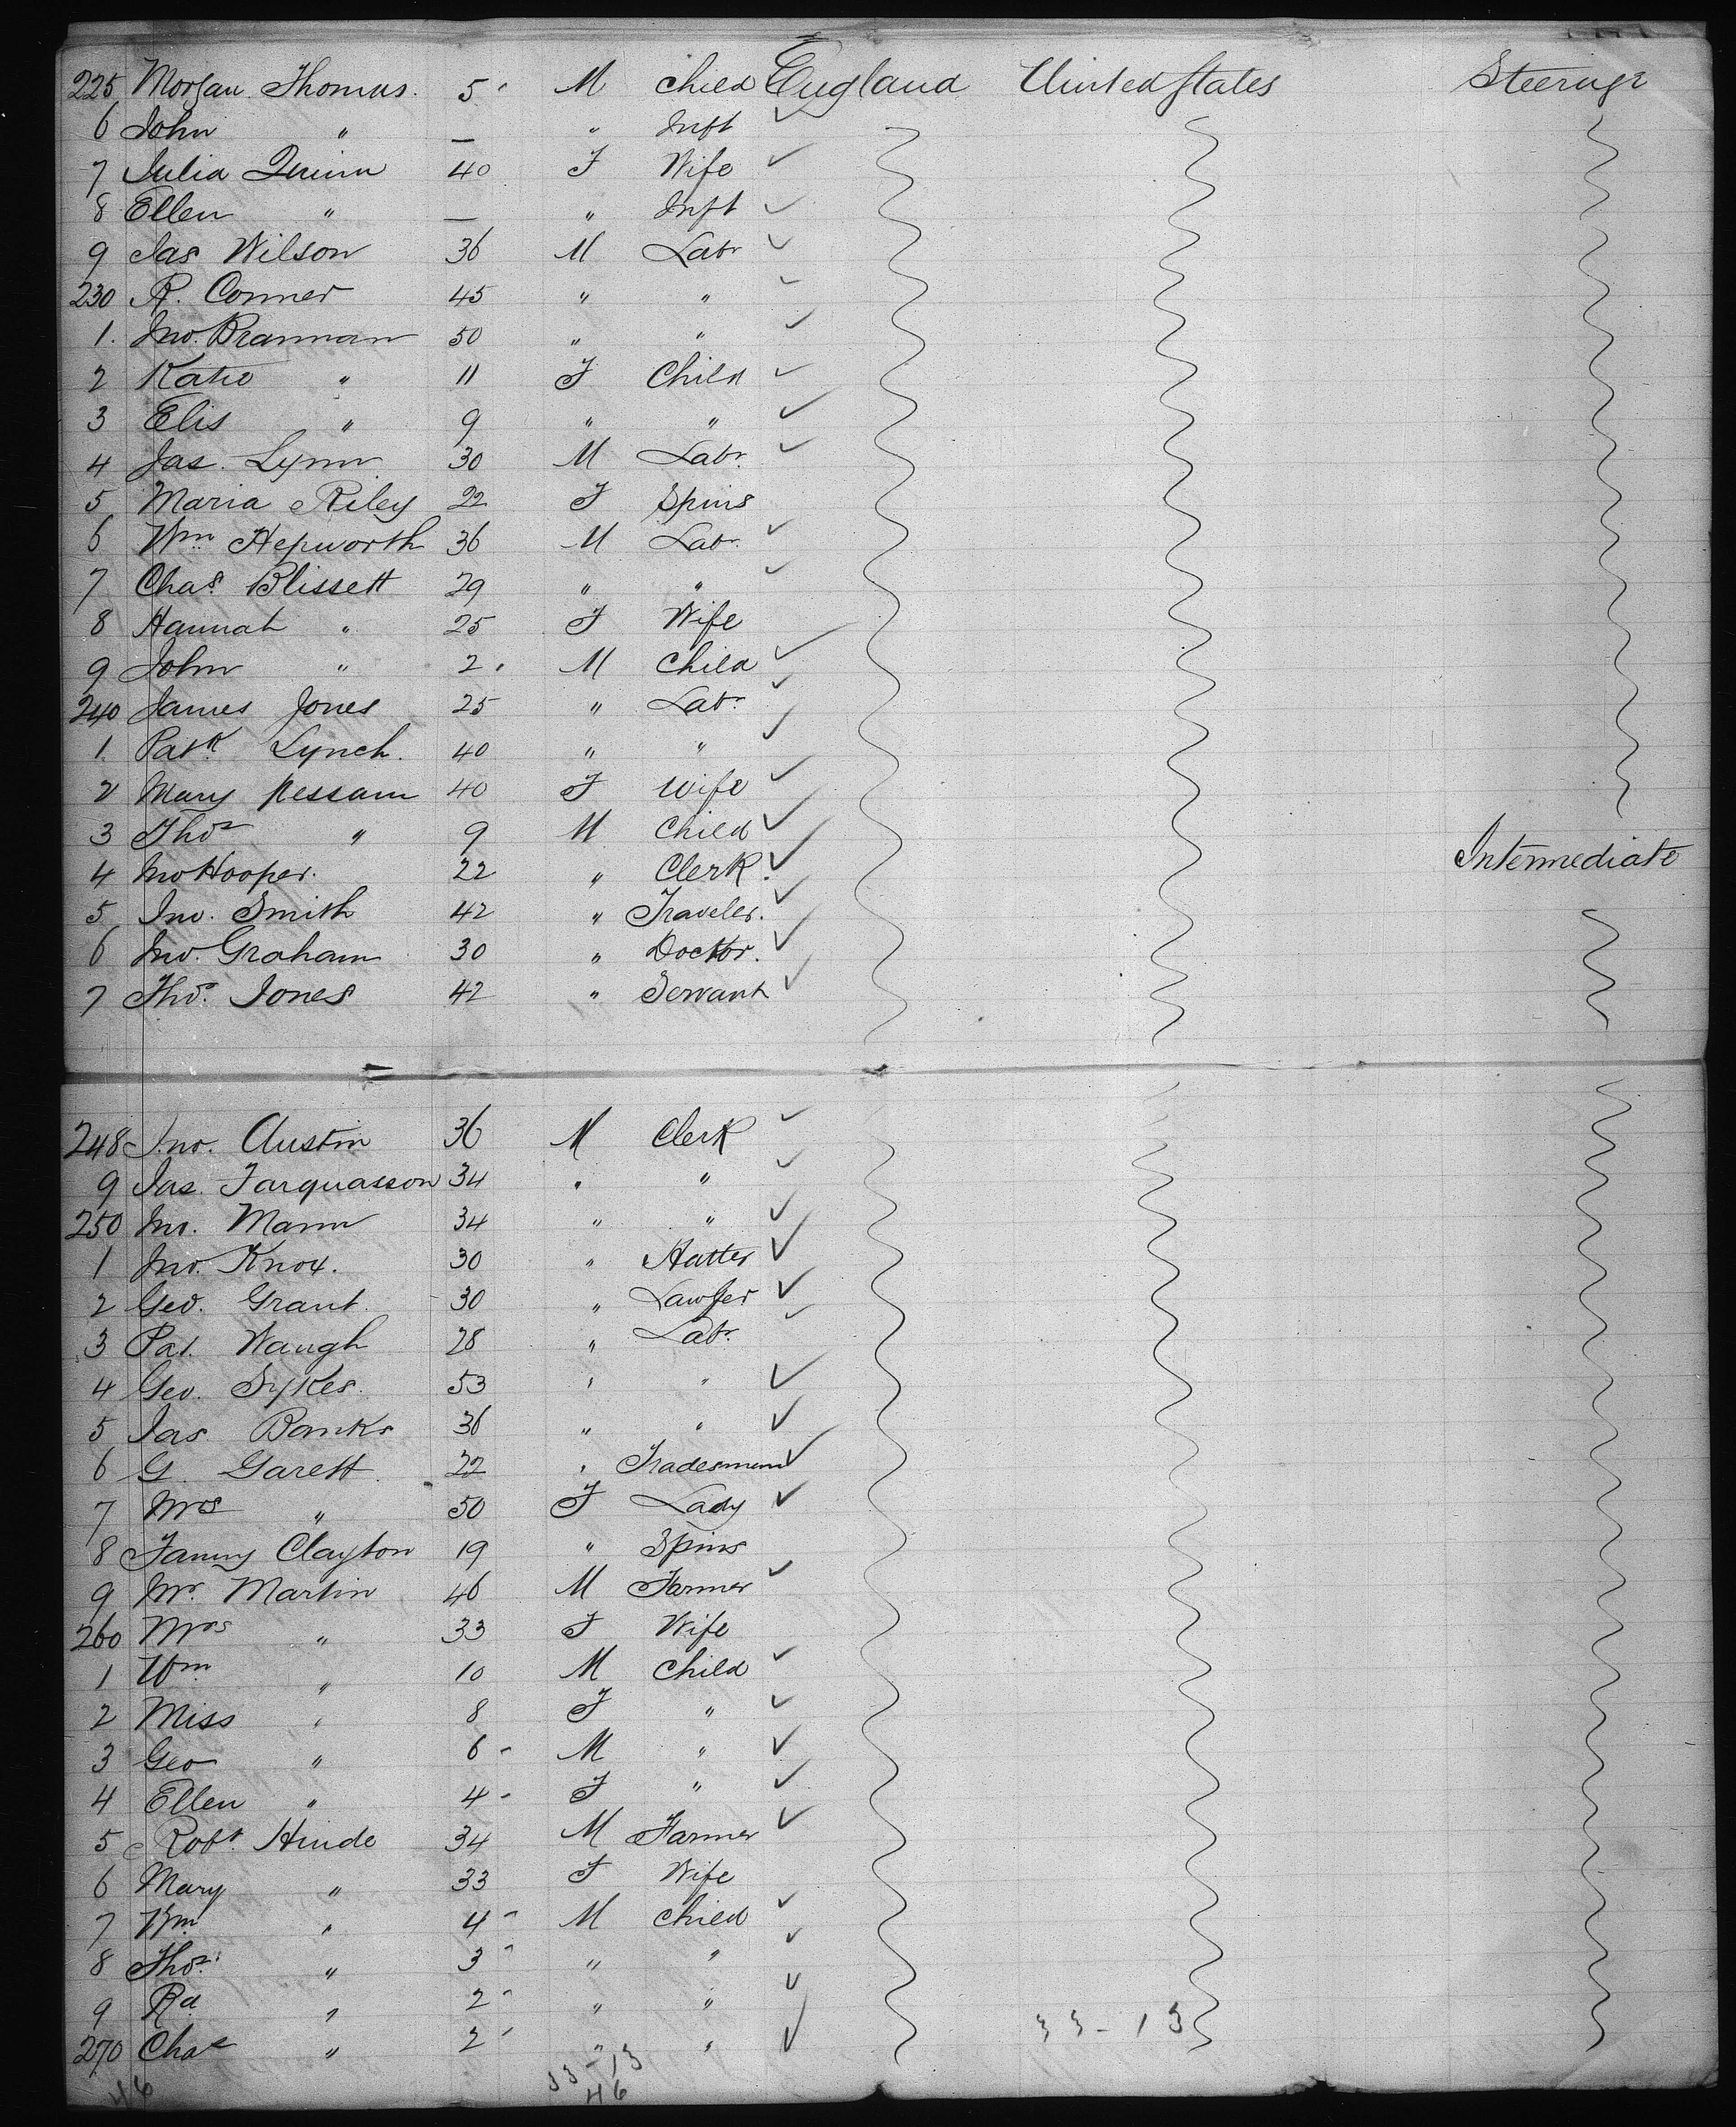 225 Morgan Thomas. 5 M Child England United States Steerage
6 John " — " Inft
7 Julia Quinn 40 F Wife
8 Ellen " — " Inft
9 Jas Wilson 36 M Labr
230 R. Conner 45 " "
1. Jno. Brannan 50 " "
2 Katie " 11 F Child
3 Elis " 9 " "
4 Jas. Lynn 30 M Labr.
5 Maria Riley 22 F Spins
6 Wm Hepworth 36 M Labr.
7 Chas. Blissett 29 " "
8 Hannah " 25 F Wife
9 John " 2 M Child
240 James Jones 25 " Labr.
1. Patk Lynch. 40 " "
2 Mary Messam 40 F Wife
3 Thos " 9 M Child
4 Jno Hooper. 22 " Clerk. Intermediate
5 Jno. Smith 42 " Traveler.
6 Jno. Graham 30 " Doctor.
7 Thos. Jones 42 " Servant
248 Jno. Austin 36 M Clerk
9 Jas. Farquasson 34 " "
250 Jno. Mann 34 " "
1 Jno. Knox. 30 " Hatter
2 Geo. Grant. 30 " Lawyer
3 Pat. Waugh 28 " Labr.
4 Geo. Sykes. 53 " "
5 Jas Banks 36 " "
6 G. Garett. 22 " Tradesman
7 Mrs " 50 F Lady
8 Fanny Clayton 19 " Spins
9 Mr. Martin 46 M Farmer
260 Mrs " 33 F Wife
1 Wm " 10 M Child
2 Miss " 8 F "
3 Geo " 6 M "
4 Ellen " 4 F "
5 Robt. Hinde 34 M Farmer
6 Mary " 33 F Wife
7 Wm. " 4 M Child
8 Thos. " 3 " "
9 Rd. " 2 " "
270 Chas " 2 " "
33-13
33-13
46
46